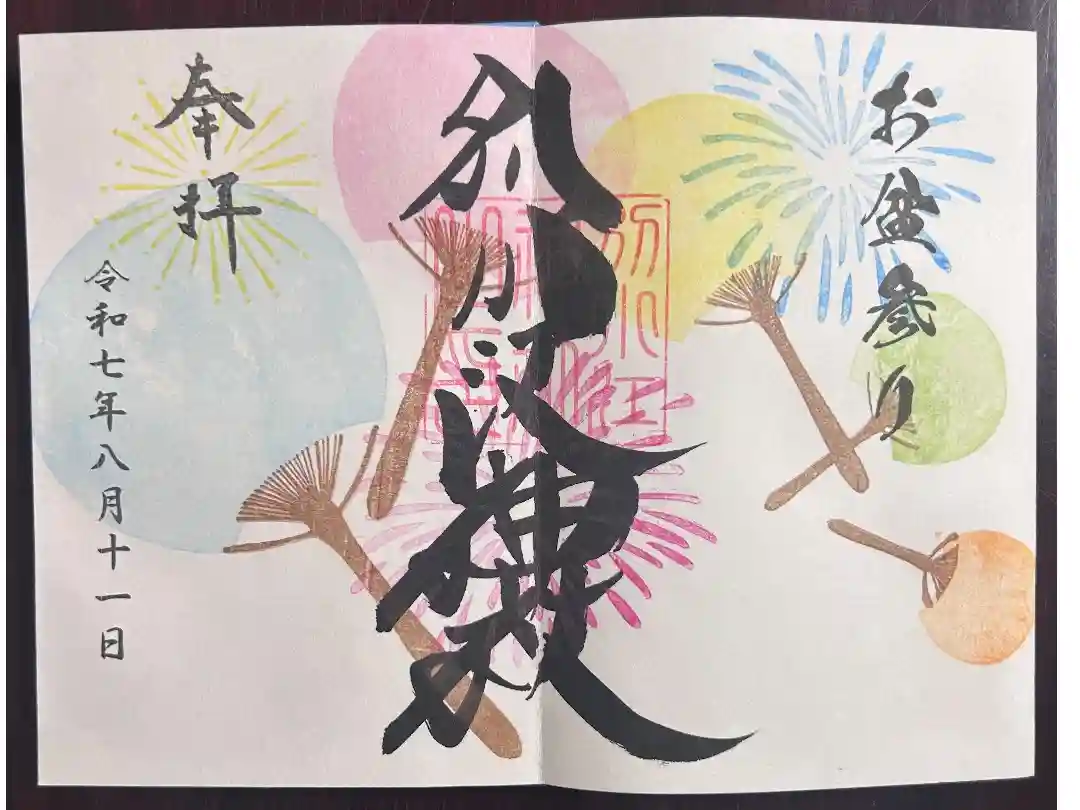 お盆参り
別小江神社
奉拝
令和七年八月十一日